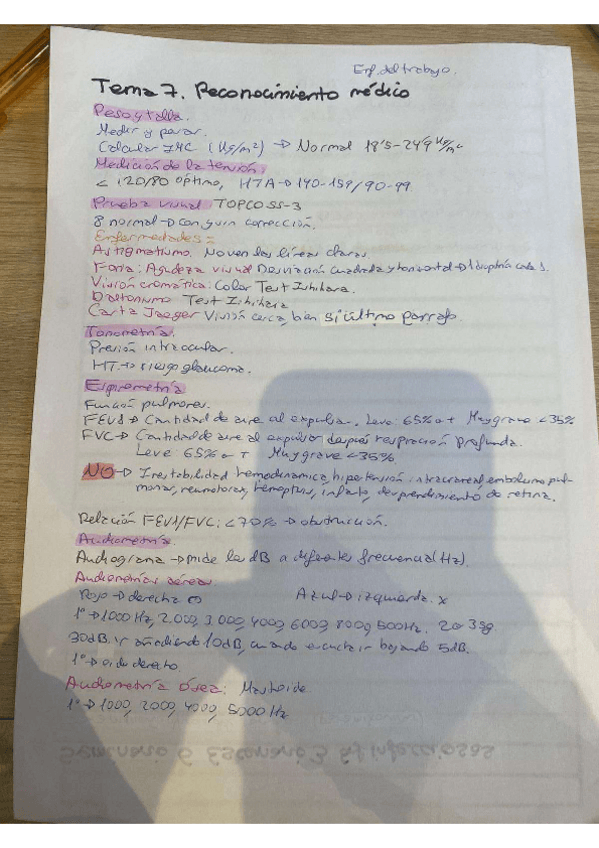 Enf. del trabajo.
Tema 7. Reconocimiento médico
Peso y talla.
Medir y pesar.
Calcular IMC (Kg/m²) → Normal 18'5-24'9 Kg/m²
Medición de la tensión:
< 120/80 óptimo, HTA → 140-159/90-99
Prueba visual TOPCO SS-3
8 normal → con y sin corrección.
Enfermedades =
Astigmatismo. No ven las líneas claras
Foria: Agudeza visual Desviación cuadrada y horizontal → 1 dioptría cada 1.
Visión cromática: Color Test Ishihara.
Daltonismo Test Ishihara
Carta Jaeger Visión cerca, bien si último párrafo.
Tonometría.
Presión intraocular.
HT → riesgo glaucoma.
Espirometría
Función pulmones.
FEV1 → Cantidad de aire al expulsar. Leve: 65% o + Muy grave <35%
FVC → Cantidad de aire al expulsar después respiración profunda.
Leve: 65% o + Muy grave <35%
NO → Inestabilidad hemodinámica, hipertensión intracraneal, embolismo pul-
monar, neumotórax, hemoptisis, infarto, desprendimiento de retina.
Relación FEV1/FVC: <70% → obstrucción.
Audiometría.
Audiograma → mide los dB a diferentes frecuencias (Hz).
Audiometrías aéreas
Rojo → derecha O Azul → izquierda. X
1º → 1000 Hz, 2000, 3000, 4000, 6000, 8000, 500Hz. 2 o 3 sg
30dB. ir añadiendo 10dB, cuando escucha ir bajando 5dB.
1º → oído derecho
Audiometría Ósea: Mastoide
1º → 1000, 2000, 4000, 5000 Hz
Seminario 6 Escenario 3 Ef infecciosas